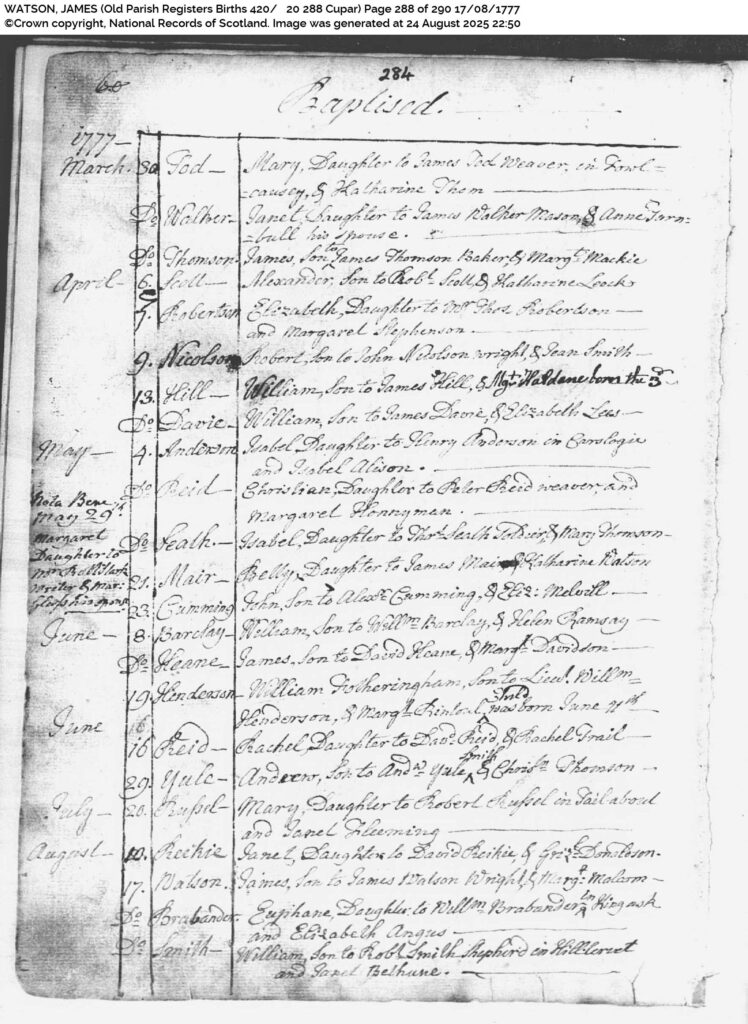 WATSON, JAMES (Old Parish Registers Births 420/ 20 288 Cupar) Page 288 of 290 17/08/1777
©Crown copyright, National Records of Scotland. Image was generated at 24 August 2025 22:50
60 284
Baptised.
1777—
March 30 Tod— Mary, Daughter to James Tod Weaver, in Fowl=
=causey, & Katharine Thom
Do Walker— Janet, Daughter to James Walker Mason, & Anne Turn=
=bull his spouse.
Do Thomson— James, Son to James Thomson Baker & Margt Mackie
April— 6. Scott— Alexander, Son to Robt Scott, & Katharine
7. Robertson Elizabeth, Daughter to Mr Thos Robertson—
and Margaret Stephenson.
9. Nicolson Robert, Son to John Nicolson wright, & Jean Smith—
13. Hill— William, Son to James Hill, & Mgt Haldane born the 3d
Do Davie— William, Son to James Davie, & Elizabeth Lees—
May— 4. Anderson Isabel Daughter to Henry Anderson in Carslogie
and Isabel Alison.
Do Reid— Christian, Daughter to Peter Reid weaver, and
Margaret Honnyman.
Nota Bene
May 29th
Margaret
Daughter to
Writer & Mar:
his spouse
Do Isabel, Daughter to Thos & Mary Thomson—
21. Mair— Betty, Daughter to James Mair & Katharine Watson
23. Cumming John, Son to Alexr Cumming, & Eliz: Melvill—
June— 8. Barclay— William, Son to Willm Barclay, & Helen Ramsay—
Do Heane— James, Son to David Heane, & Margt Davidson—
19 Henderson— William Fotheringham, Son to Lieut. Willm
Henderson, & Margt child was born June 11th
June 16
16 Reid— Rachel, Daughter to Davd Reid, & Rachel Trail—
29. Yule— Andrew, Son to Andw Yule smith & Christn Thomson—
July— 20. Russel— Mary, Daughter to Robert Russel in Tail-about
and Janet Fleeming
August— 10. Reekie Janet, Daughter to David Reikie, & Grizel Donaldson.
17. Watson. James, Son to James Watson Wright, & Margt Malcom—
Do Brabander. Euphane, Daughter to Willm Brabander in Kingask
and Elizabeth Angus
Do Smith— William, Son to Robt Smith Shepherd in
and Janet Bethune.